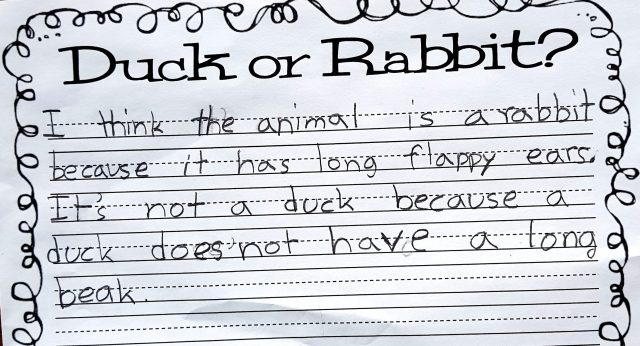 Duck or Rabbit?
I think the animal is a rabbit
because it has long flappy ears.
It's not a duck because a
duck does'not have a long
beak.